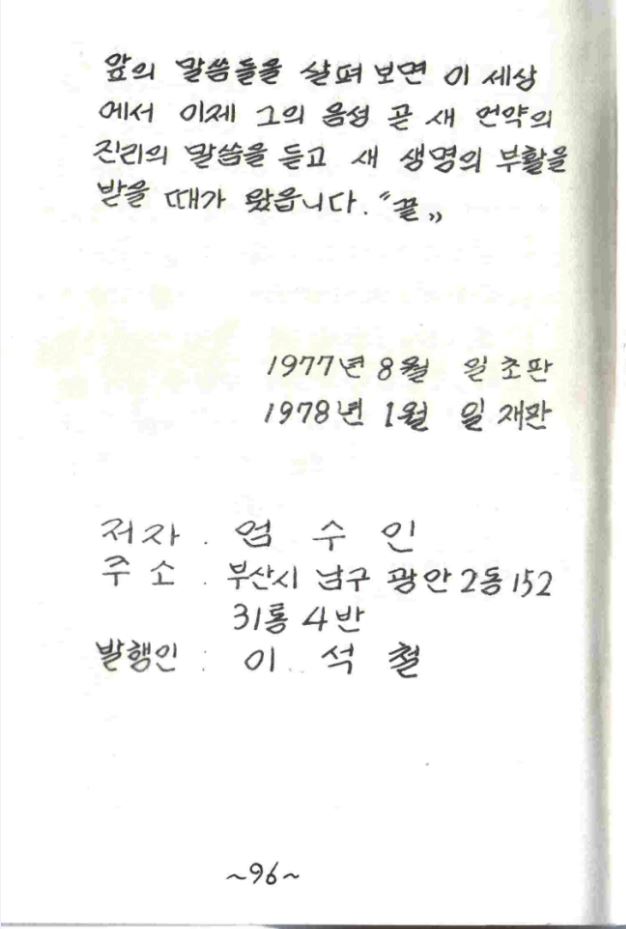 앞의 말씀들을 살펴 보면 이 세상
에서 이제 그의 음성 곧 새 언약의
진리의 말씀을 듣고 새 생명의 부활을
받을 때가 왔읍니다. "끝"
1977년 8월 일 초판
1978년 1월 일 재판
저자 . 엄 수 인
주 소 . 부산시 남구 광안 2동 152
31통 4반
발행인 : 이 석 철
~96~